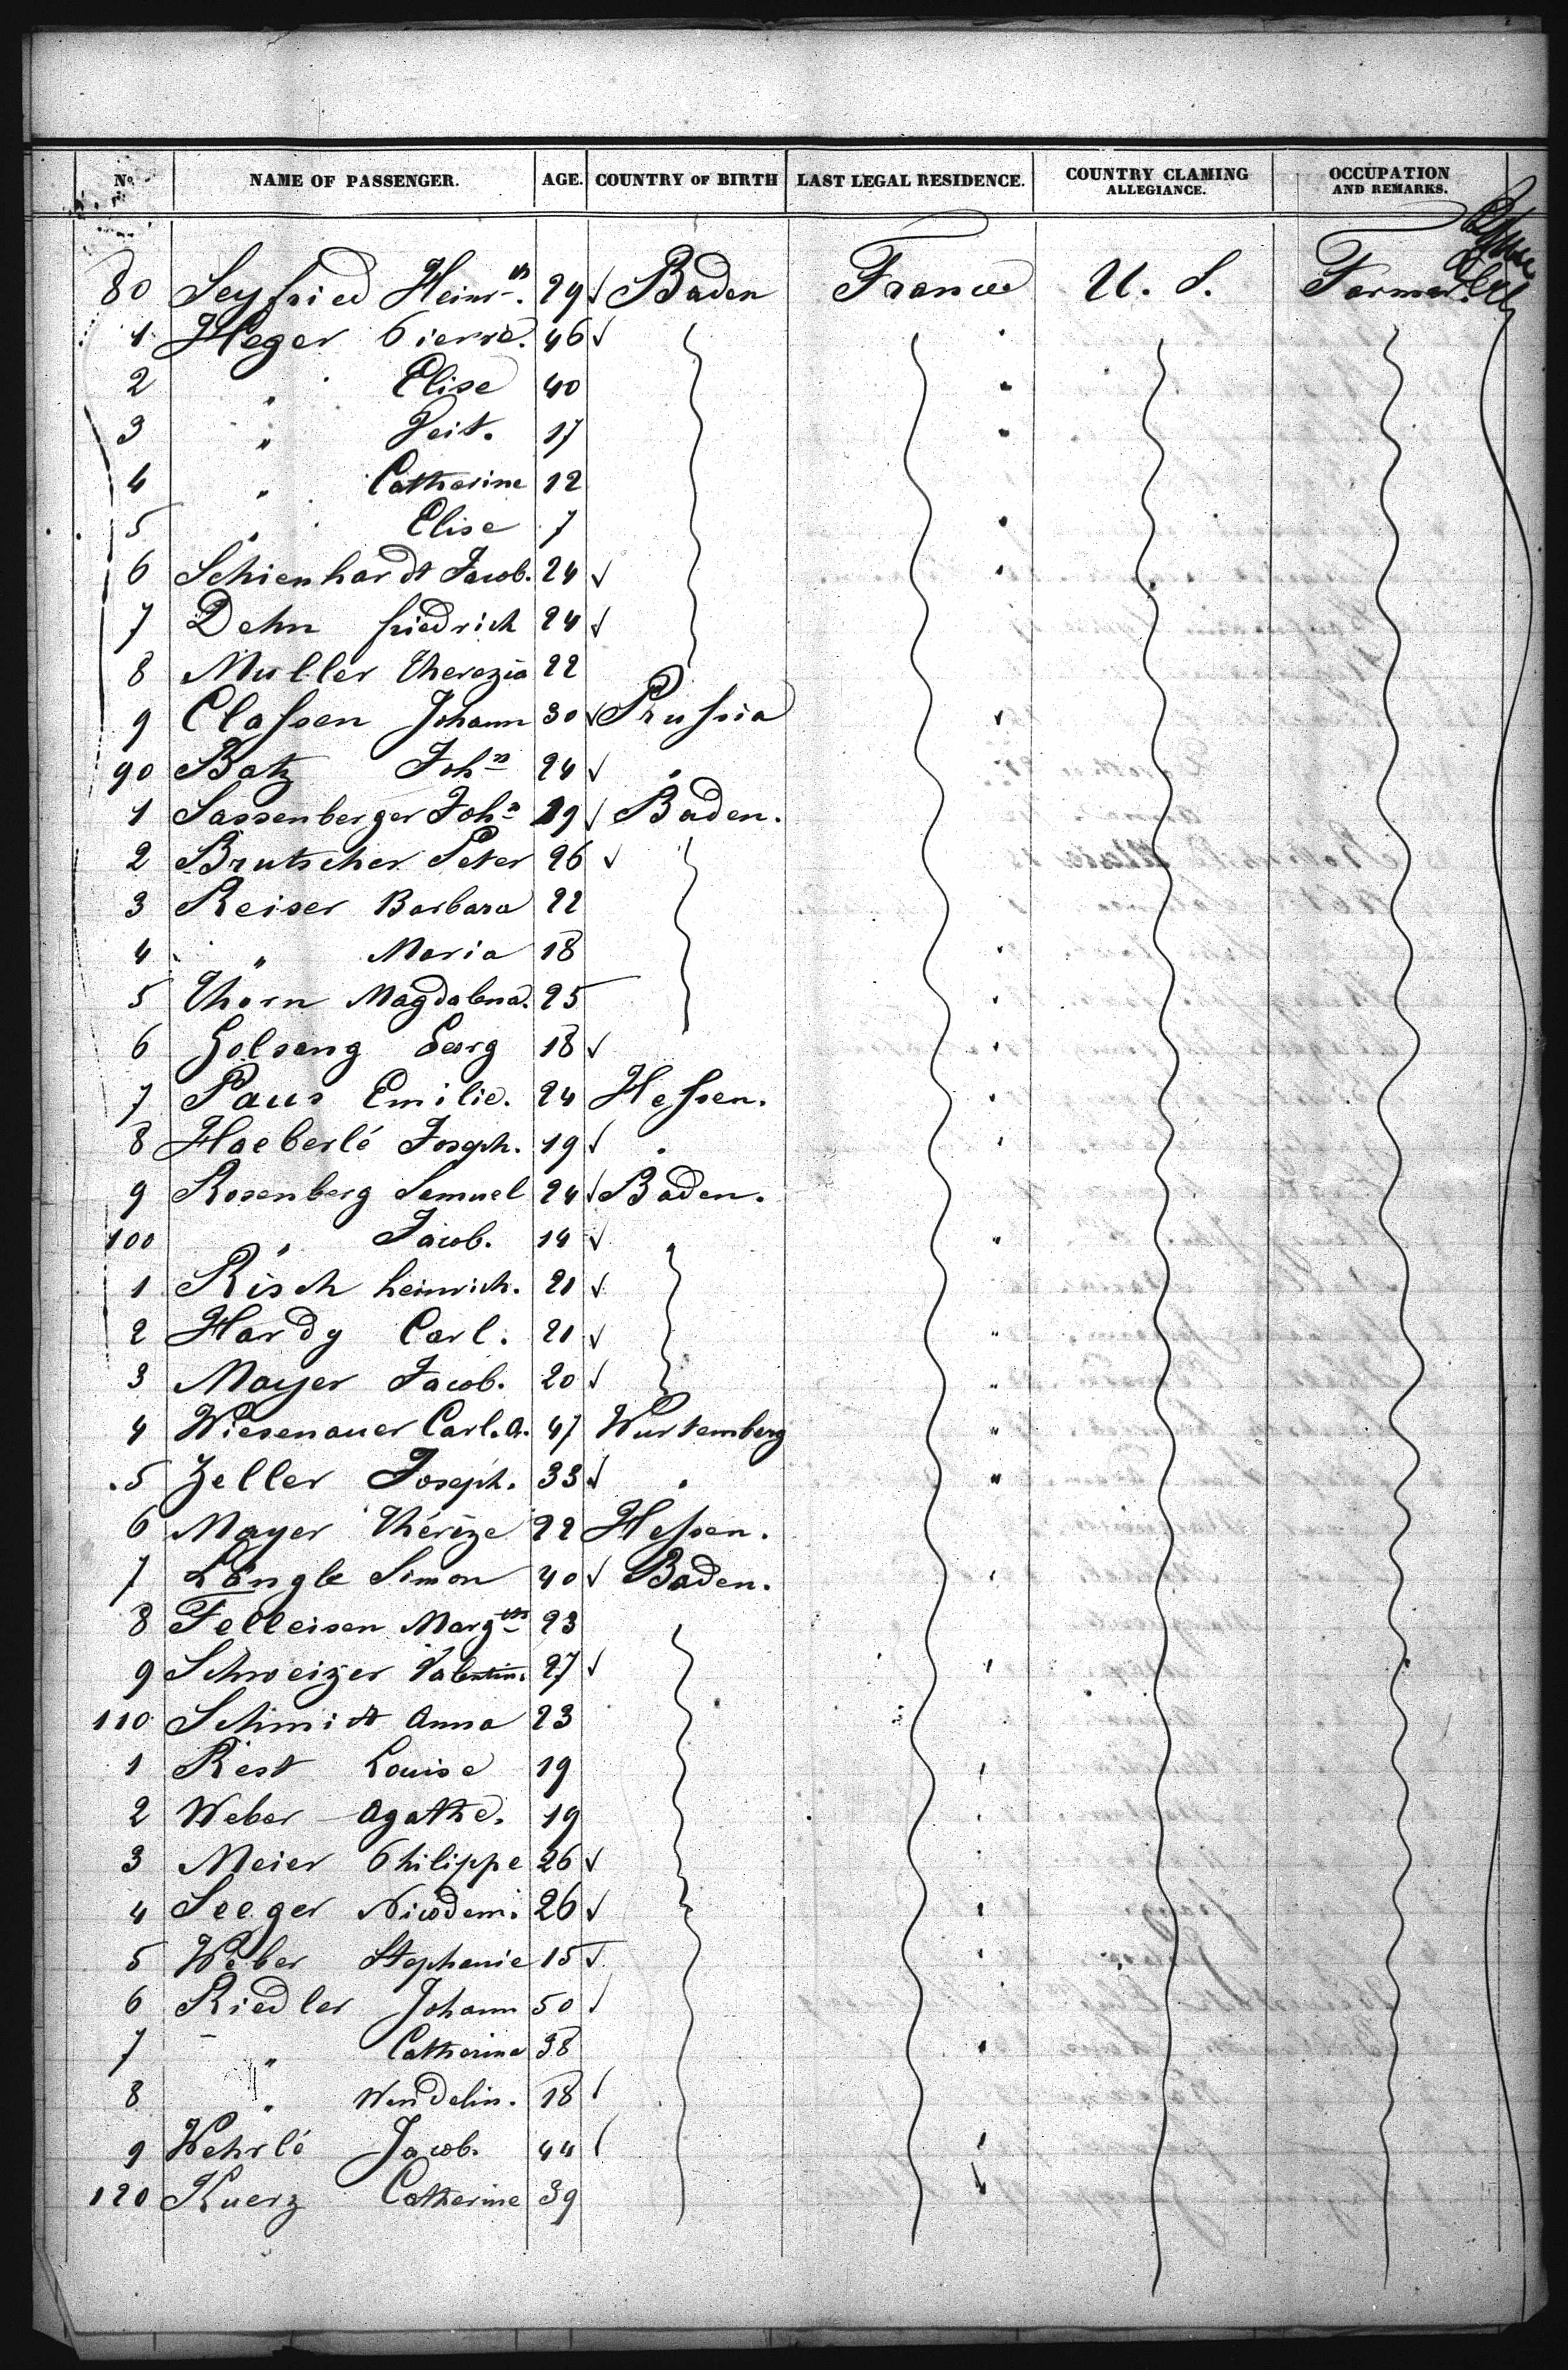 No. NAME OF PASSENGER. AGE. COUNTRY OF BIRTH LAST LEGAL RESIDENCE. COUNTRY CLAMING ALLEGIANCE. OCCUPATION AND REMARKS.
80 Seyfried Heinr^ch. 29 ✓ Baden France U. S. Farmer.
1 Heger Pierre. 46 ✓
2 " Elise 40 "
3 " Veit. 17 "
4 " Catherine 12
5 " Elise 7 "
6 Schienhardt Jacob. 24 ✓ "
7 Dehn friedrich 24 ✓
8 Muller Therezia 22
9 Claßen Johann 30 ✓ Prußia "
90 Batz Joh^n 24 ✓ "
1 Sassenberger Joh^n 19 ✓ Baden.
2 Brutscher Peter 26 ✓
3 Reiser Barbara 22
4 " Maria 18 "
5 Thorn Magdalena. 25 "
6 Golsang Georg 18 ✓ "
7 Paus Emilie. 24 Heßen. "
8 Haeberlé Joseph. 19 ✓ " "
9 Rosenberg Samuel 24 ✓ Baden.
100 " Jacob. 14 ✓ "
1 Risch heinrich. 21 ✓ "
2 Hardy Carl. 21 ✓ "
3 Mayer Jacob. 20 ✓ "
4 Wiesenauer Carl. A. 47 Wurtemberg "
5 Zeller Joseph. 33 ✓ " "
6 Mayer Thérèze 22 Heßen.
7 Längle Simon 40 ✓ Baden. "
8 Felleisen Marg^th 23
9 Schweizer Valentin. 27 ✓ "
110 Schmidt Anna 23
1 Rest Louise 19 "
2 Weber Agathe. 19 "
3 Meier Philippe 26 ✓ "
4 Seeger Nicodem. 26 ✓ "
5 Weber Stephanie 15 ✓ "
6 Riedler Johann 50 ✓ "
7 " Catherine 38 "
8 " Wendelin. 18 ✓
9 Wehrlé Jacob. 44 ✓ "
120 Kuerz Catherine 39 "